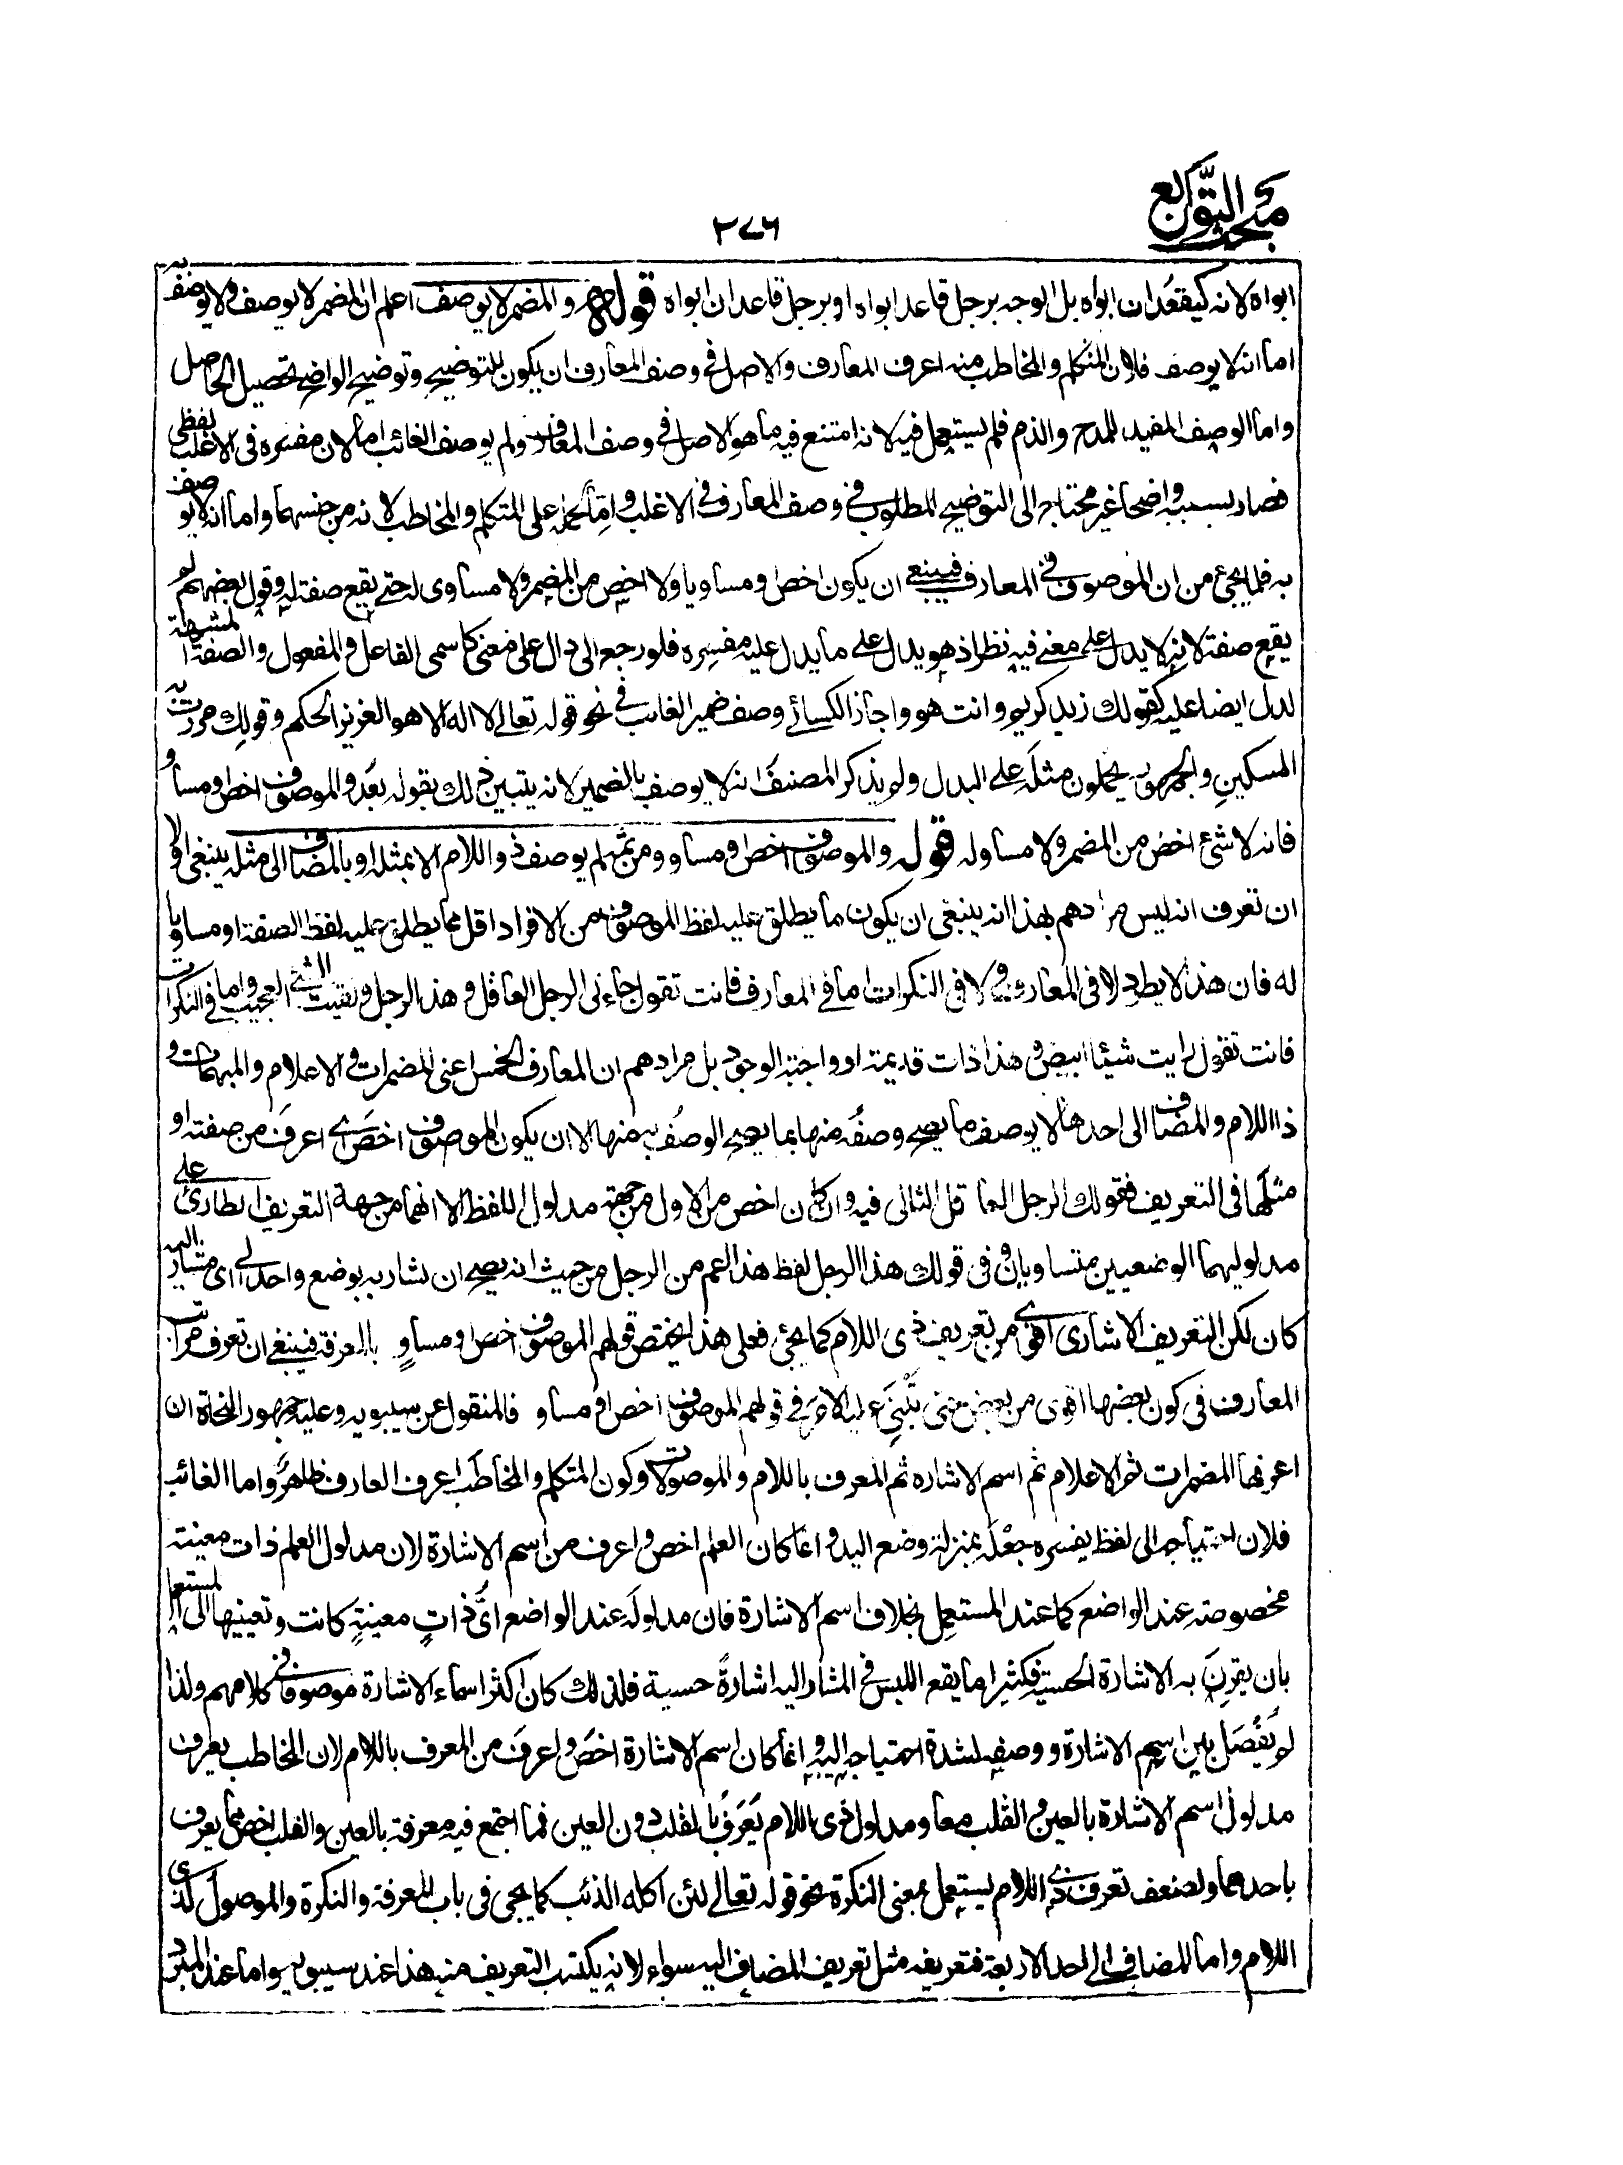 مبحث التوابع
٢٧٦
ابواه لانه كيقعدان ابواه بل الوجه برجل قاعد ابواه او برجل قاعدان ابواه قوله والمضمر لا يوصف اعلم ان المضمر لا يوصف ولا يوصف به
اما انه لا يوصف فلان المتكلم والمخاطب منه اعرف المعارف والاصل فى وصف المعارف ان يكون للتوضيح وتوضيح الواضح تحصيل الحاصل
واما الوصف المفيد للمدح والذم فلم يستعمل فيه لانه امتنع فيه ما هو الاصل فى وصف المعارف ولم يوصف الغائب اما لان مفسره فى الاغلب لفظى
فصار بسببه واضحا غير محتاج الى التوضيح المطلوب فى وصف المعارف فى الاغلب واما لحمله على المتكلم والمخاطب لانه من جنسهما واما انه لا يوصف
به فلما يجئ من ان الموصوف فى المعارف فينبغى ان يكون اخص ومساويا ولا اخص من المضمر ولا مساوى له حتى يقع صفة له وقول بعضهم لم
يقع صفة لانه لا يدل على معنى فيه نظر اذ هو يدل على ما يدل عليه مفسره فلو رجع الى دال على معنى كاسمى الفاعل والمفعول والصفة المشبهة
لدل ايضا عليه كقولك زيد كريم وانت هو واجاز الكسائى وصف ضمير الغائب فى نحو قوله تعالى لا اله الا هو العزيز الحكيم وقولك مررت به
المسكين والجمهور يحملون مثله على البدل ولم يذكر المصنف انه لا يوصف بالضمير لانه يتبين ذلك بقوله بعد والموصوف اخص او مساو
فانه لا شئ اخص من المضمر ولا مساو له قوله والموصوف اخص او مساو ومن ثم لم يوصف ذو اللام الا بمثله او بالمضاف الى مثله ينبغى اولا
ان تعرف انه ليس مرادهم بهذا انه ينبغى ان يكون ما يطلق عليه لفظ الموصوف من الافراد اقل مما يطلق عليه لفظ الصفة او مساويا
له فان هذا لا يطرد لا فى المعارف ولا فى النكرات اما فى المعارف فانت تقول جاءنى الرجل العاقل وهذا الرجل ولقيت الشئ العجيب واما فى النكرات
فانت تقول رايت شيئا ابيض وهذا ذات قديمة او واجبة الوجود بل مرادهم ان المعارف الخمس اعنى المضمرات والاعلام والمبهمات و
ذا اللام والمضاف الى احدها لا يوصف ما يصح وصفه منها بما يصح الوصف به منها الا ان يكون الموصوف اخص اى اعرف من صفته او
مثلها فى التعريف فقولك الرجل العاقل الثانى فيه وان كان اخص من الاول من جهة مدلول اللفظ الا انهما من جهة التعريف الطارئ على
مدلوليهما الوضعيين متساويان وفى قولك هذا الرجل لفظ هذا اعم من الرجل من حيث انه يصح ان يشار به بوضع واحد الى اى مشار اليه
كان لكن التعريف الاشارى اقوى من تعريف ذى اللام كما يجئ فعلى هذا يختص قولهم الموصوف اخص او مساو بالمعرفة فينبغى ان تعرف مراتب
المعارف فى كون بعضها اقوى من بعض حتى تبنى عليه الامر فى قولهم الموصوف اخص او مساو فالمنقول عن سيبويه وعليه جمهور النحاة ان
اعرفها المضمرات ثم الاعلام ثم اسم الاشاره ثم المعرف باللام والموصولات وكون المتكلم والمخاطب اعرف المعارف ظاهر واما الغائب
فلان احتياجه الى لفظ يفسره جعله بمنزلة وضع اليد وانما كان العلم اخص واعرف من اسم الاشارة لان مدلول العلم ذات معينة
مخصوصة عند الواضع كما عند المستعمل بخلاف اسم الاشارة فان مدلوله عند الواضع اى ذات معينة كانت وتعيينها الى المستعمل
بان يقرن به الاشارة الحسية فكثيرا ما يقع اللبس فى المشار اليه اشارة حسية فلذلك كان اكثر اسماء الاشارة موصوفا فى كلامهم ولذا
لم يفصل بين اسم الاشارة ووصفه لشدة احتياجه اليه وانما كان اسم الاشارة اخص واعرف من المعرف باللام لان المخاطب يعرف
مدلول اسم الاشارة بالعين والقلب معا ومدلول ذى اللام يعرف بالقلب دون العين فما اجتمع فيه معرفة بالعين والقلب اخص مما يعرف
باحدهما ولضعف تعرف ذى اللام يستعمل بمعنى النكرة نحو قوله تعالى لئن اكله الذئب كما يجئ فى باب المعرفة والنكرة والموصول كذى
اللام واما المضاف الى احد الاربعة فتعريفه مثل تعريف المضاف اليه سواء لانه يكتسب التعريف منه هذا عند سيبويه واما عند المبرد